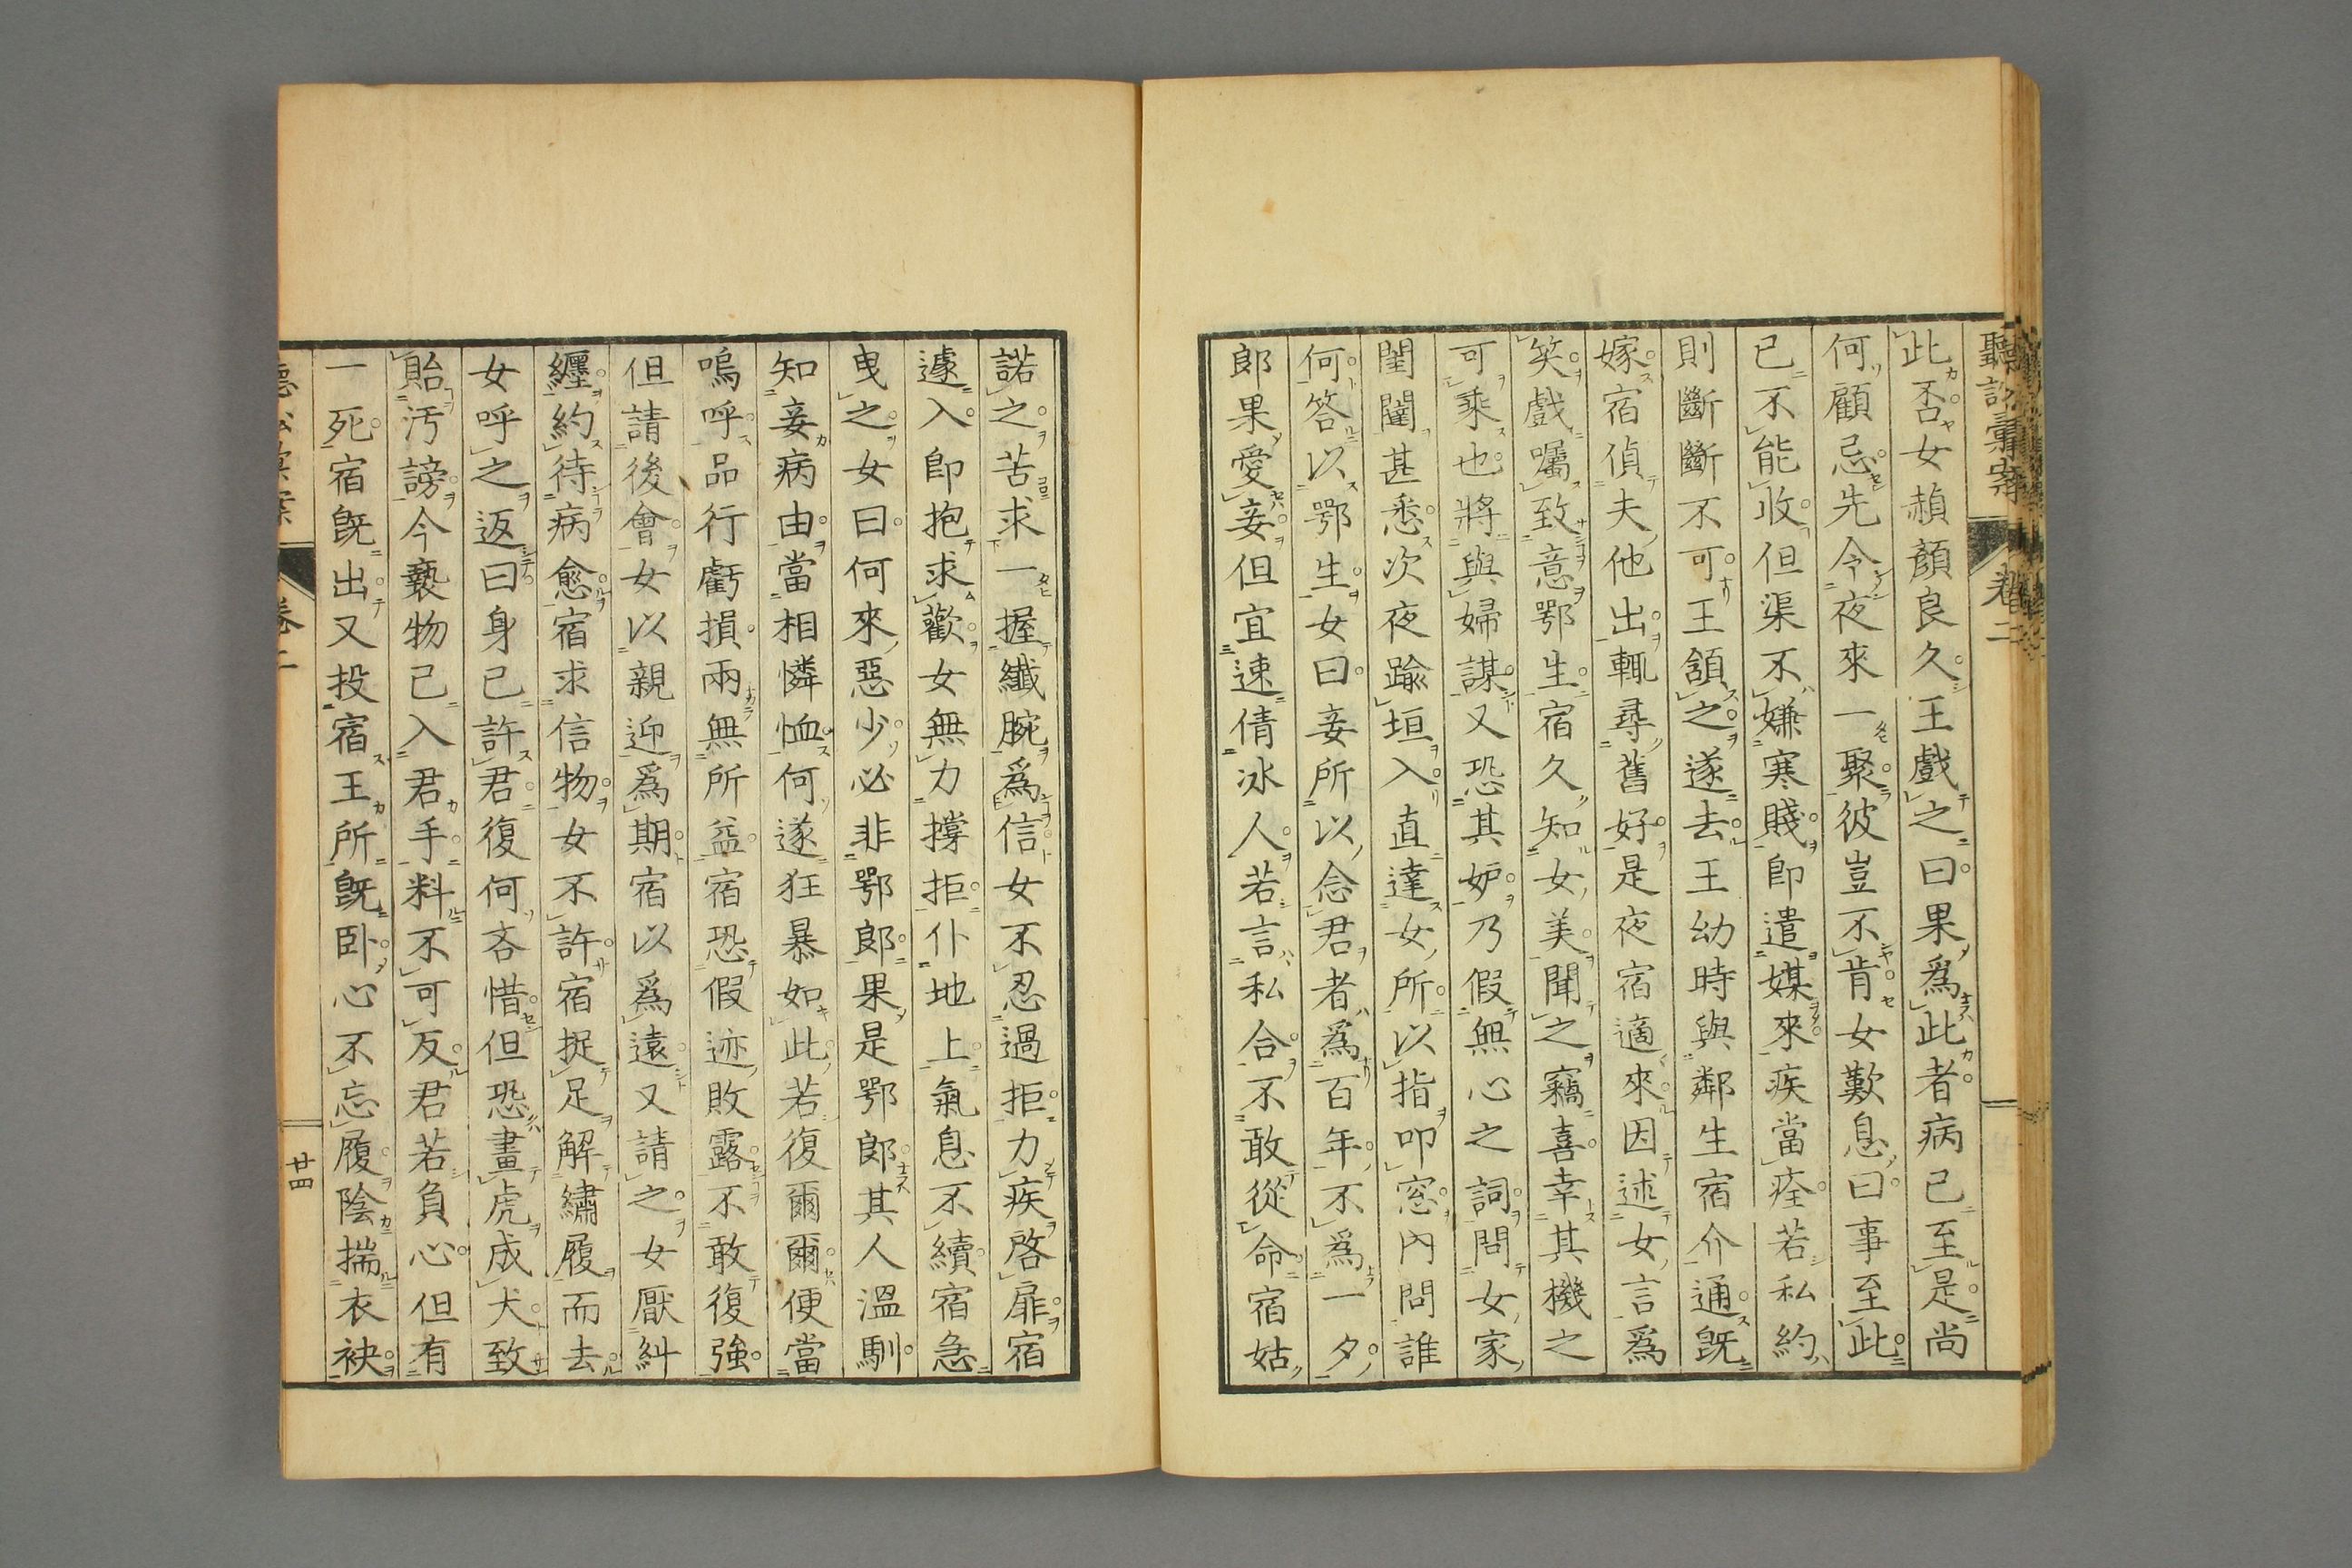 聽訟彙案 卷二
此否女赬顏良久王戲之曰果爲此者病已至是尚
何顧忌先令夜來一聚彼豈不肯女歎息曰事至此
已不能收但渠不嫌寒賤即遣媒來疾當痊若私約
則斷斷不可王頷之遂去王幼時與鄰生宿介通既
嫁宿偵夫他出輒尋舊好是夜宿適來因述女言爲
笑戲囑致意鄂生宿久知女美聞之竊喜幸其機之
可乘也將與婦謀又恐其妒乃假無心之詞問女家
閨闥甚悉次夜踰垣入直達女所以指叩窓內問誰
何答以鄂生女曰妾所以念君者爲百年不爲一夕
郎果愛妾但宜速倩冰人若言私合不敢從命宿姑
諾之苦求一握纖腕爲信女不忍過拒力疾啓扉宿
遽入卽抱求歡女無力撐拒仆地上氣息不續宿急
曳之女曰何來惡少必非鄂郎果是鄂郎其人溫馴
知妾病由當相憐恤何遂狂暴如此若復爾爾便當
嗚呼品行虧損兩無所益宿恐假迹敗露不敢復強
但請後會女以親迎爲期宿以爲遠又請之女厭糾
纏約待病愈宿求信物女不許宿捉足解繡履而去
女呼之返曰身已許君復何吝惜但恐畫虎成犬致
貽汚謗今褻物已入君手料不可反君若負心但有
一死宿既出又投宿王所既臥心不忘履陰揣衣袂
卷二
廿四